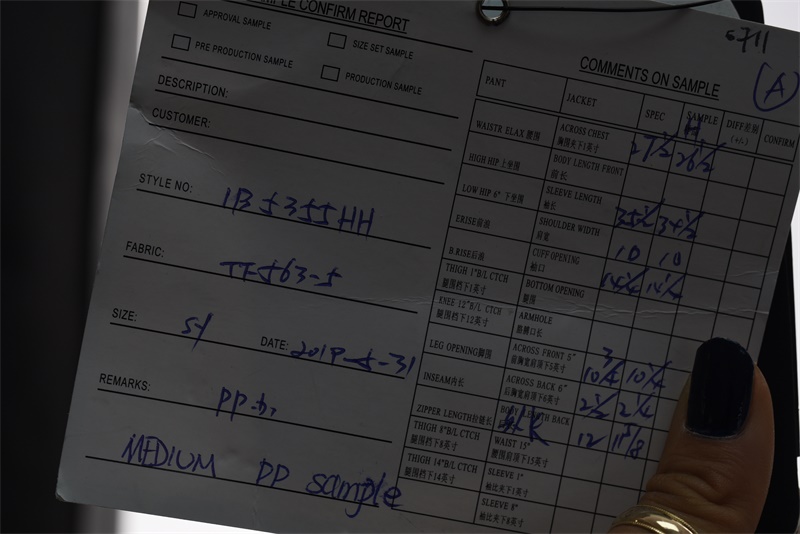 CONFIRM REPORT
APPROVAL SAMPLE
SIZE SET SAMPLE
PRE PRODUCTION SAMPLE
PRODUCTION SAMPLE
DESCRIPTION:
CUSTOMER:
STYLE NO: 1B5355HH
FABRIC: TF563-5
SIZE:
DATE: 2019-5-31
REMARKS: PP
MEDIUM PP sample
6711
COMMENTS ON SAMPLE
A
PANT JACKET SPEC SAMPLE DIFF差别 (+/-) CONFIRM
H
WAISTR ELAX 腰围 ACROSS CHEST 胸围夹下1英寸 27 1/2 26 1/2
HIGH HIP 上坐围 BODY LENGTH FRONT 前长
LOW HIP 6" 下坐围 SLEEVE LENGTH 袖长
ERISE前浪 SHOULDER WIDTH 肩宽 35 1/2 34 1/2
B.RISE后浪 CUFF OPENING 袖口 10 10
THIGH 1"B/L CTCH 腿围裆下1英寸 BOTTOM OPENING 腿围 14 1/4 14 1/4
KNEE 12"B/L CTCH 腿围裆下12英寸 ARMHOLE
LEG OPENING脚围 ACROSS FRONT 5" 前胸宽肩顶下5英寸
INSEAM内长 ACROSS BACK 6" 后胸宽肩顶下6英寸 10 1/4
ZIPPER LENGTH拉链长 BODY LENGTH BACK 2 1/2 2 1/4
THIGH 8"B/L CTCH 腿围裆下8英寸 WAIST 15" 腰围肩顶下15英寸 12 11 5/8
THIGH 14"B/L CTCH 腿围裆下14英寸 SLEEVE 1" 袖比夹下1英寸
SLEEVE 8" 袖比夹下8英寸